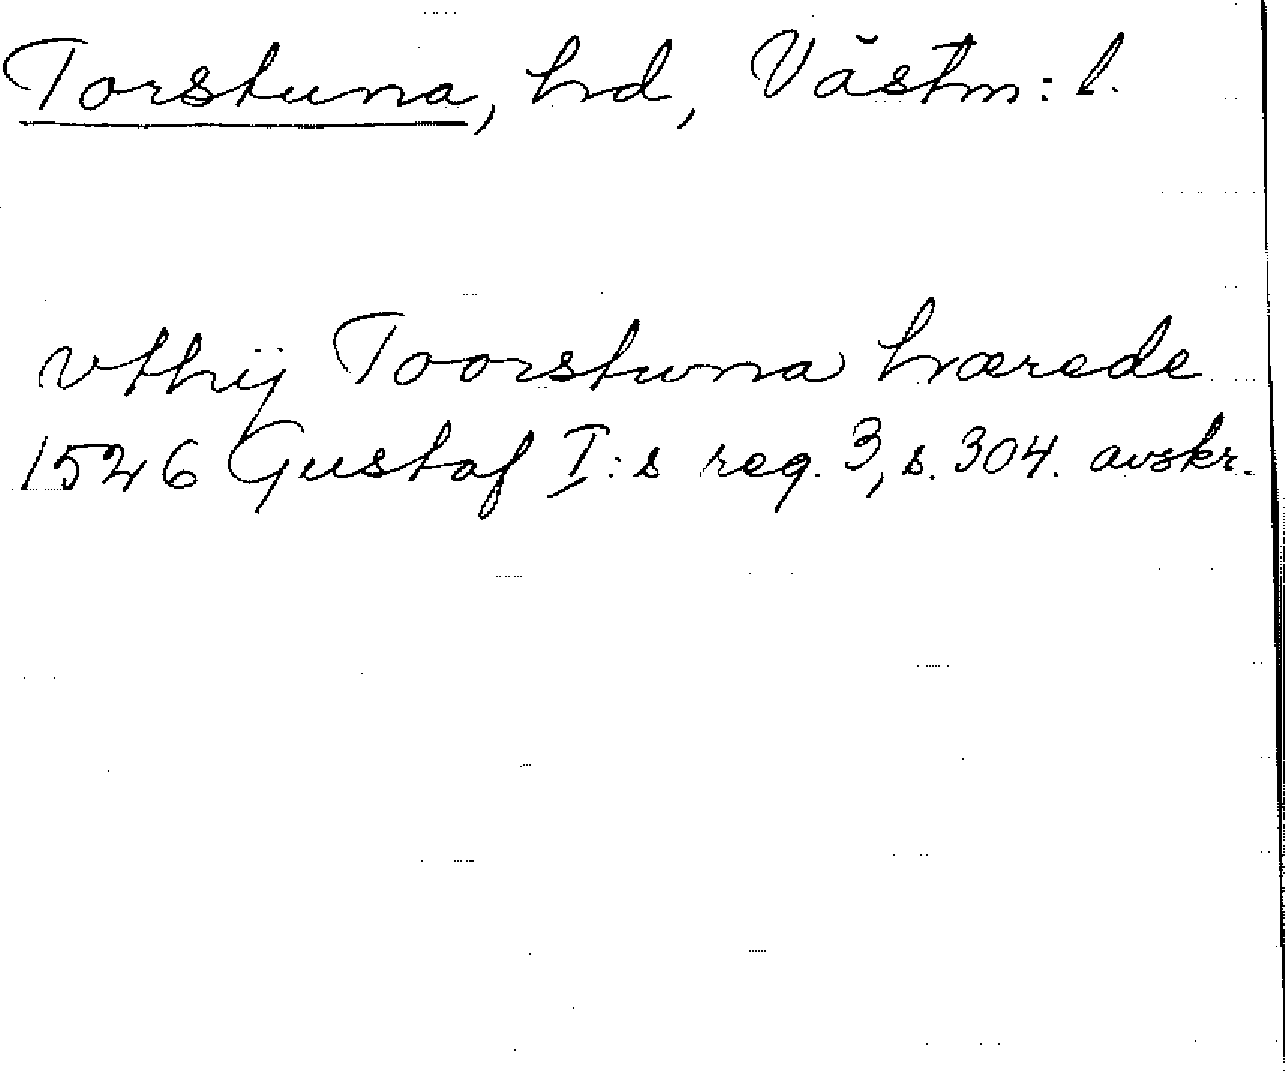 Torstuna, hd, Västm: l.
vthij Toorstuna hærede
1526 Gustaf I:s reg. 3, s. 304. avskr.